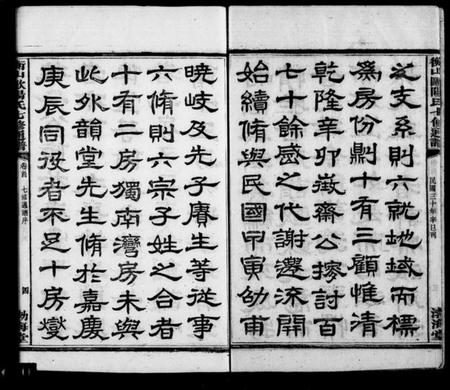 衡山歐陽氏七修通譜
民國三十年辛巳刊
渤海堂
之支系則六就地域而標
為房份剽十有三顧惟清
乾隆辛卯嶽齋公搜討百
七十餘歲之代謝遷流開
始續脩與民國甲寅劭甫
曉岐及先子賡生等從事
六脩則六宗子姓之合者
十有二房獨南灣房未與
此外韻堂先生脩於嘉慶
庚辰同役者不足十房爕
衡山歐陽氏七修通譜
卷首
七修通譜序
四
渤海堂